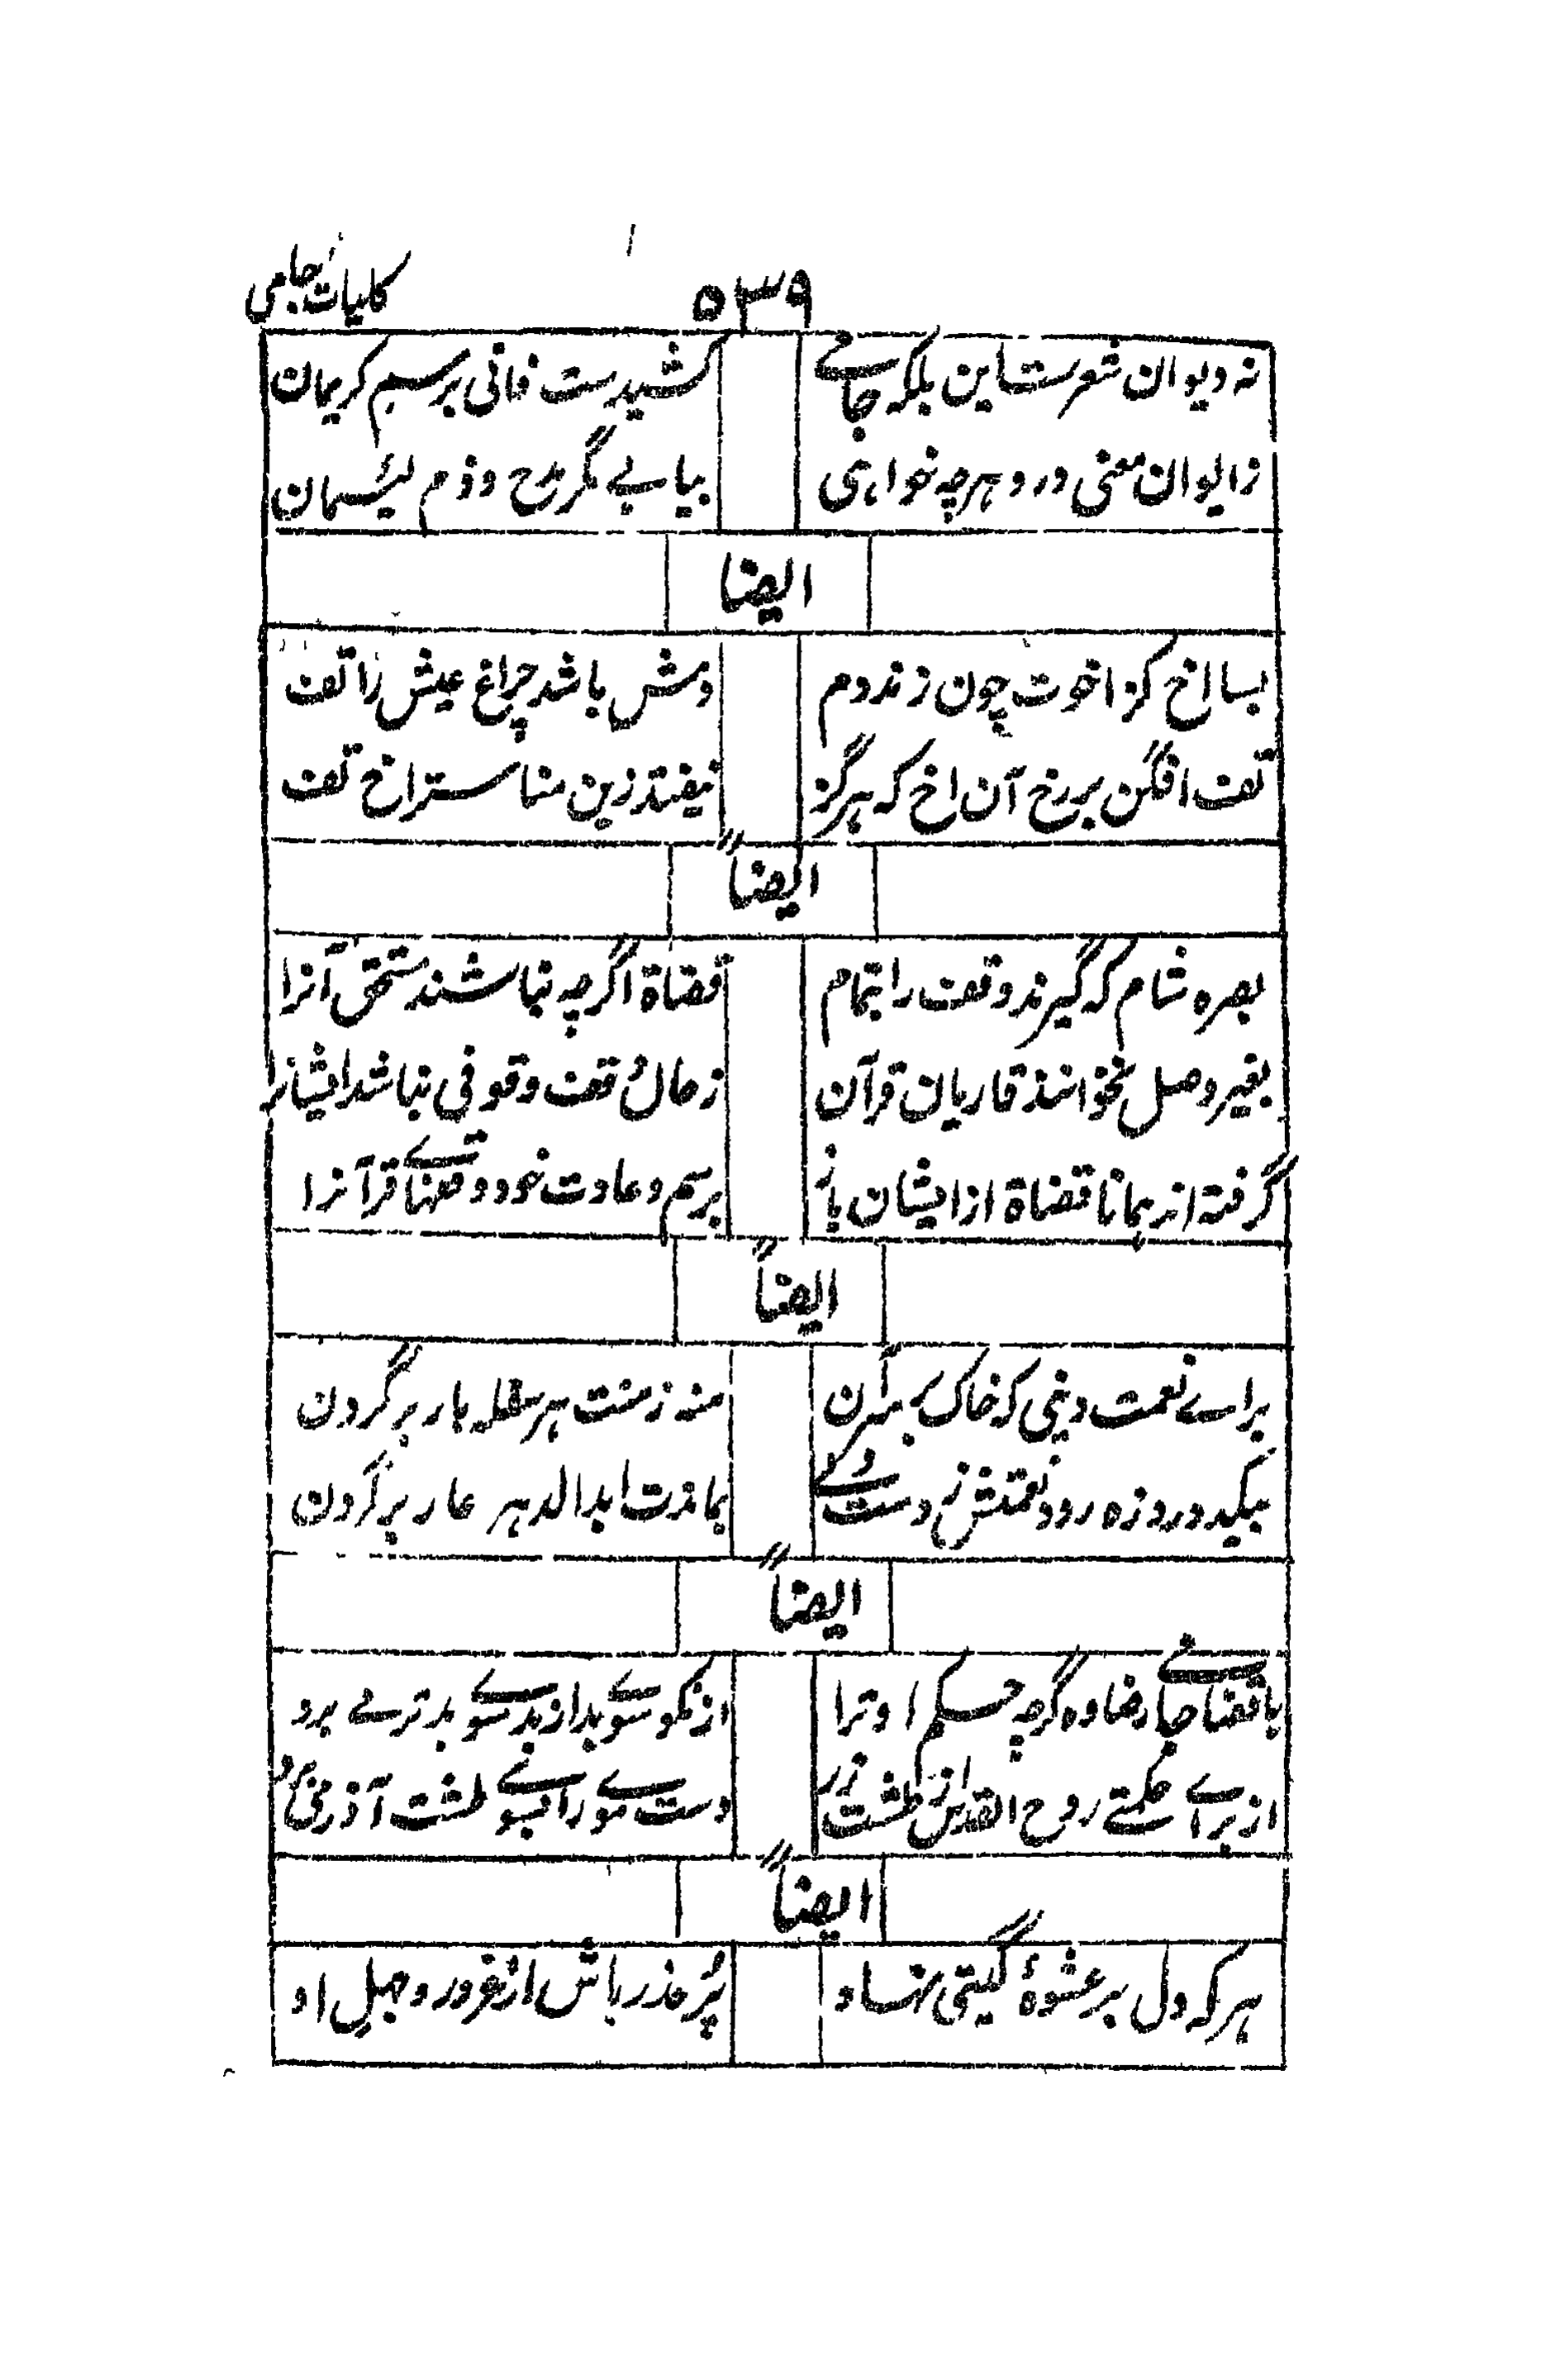 کلیات جامی
۵۳۹
نه دیوان شعرست این بلکه جامے
کشیدست خانی برسم کریمان
ز ایوان معنی درو هرچه خواهی
بیابے مگر مدح و ذم لئیمان
ایضا
بسا اخ کز اخوت چون زند دم
دمش باشد چراغ عیش را تف
تف افگن بر رخ آن اخ که هرگز
نیفتد زین مناسستر اخ تف
ایضاً
بصره شام که گیرند وقف را بتمام
قضاة اگرچه نباشند مستحق آنرا
بغیر وصل نخوانند قاریان قرآن
ز حال قف وقوفی نباشد ایشانرا
گرفته اند همانا قضاة از ایشان باز
برسم و عادت خود وقفهاے قرآنرا
ایضاً
براے نعمت دنیی که خاک بر سر آن
منه ز منت هر سفله بار بر گردن
بیکدو روزه رود نعمتش ز دست ولے
بماندت ابد الدهر عار بر گردن
ایضاً
با قضاے رضا ده گرچه حکم او ترا
از نکو سوے بد از بد سوے بدترے برد
از براے حکمتے روح القدس از طشت زر
دست موسے را بسوے طشت آذر می برد
ایضاً
هر که دل بر عشوهٔ گیتی نهاد
پُر حذر باش از غرور و جهل او